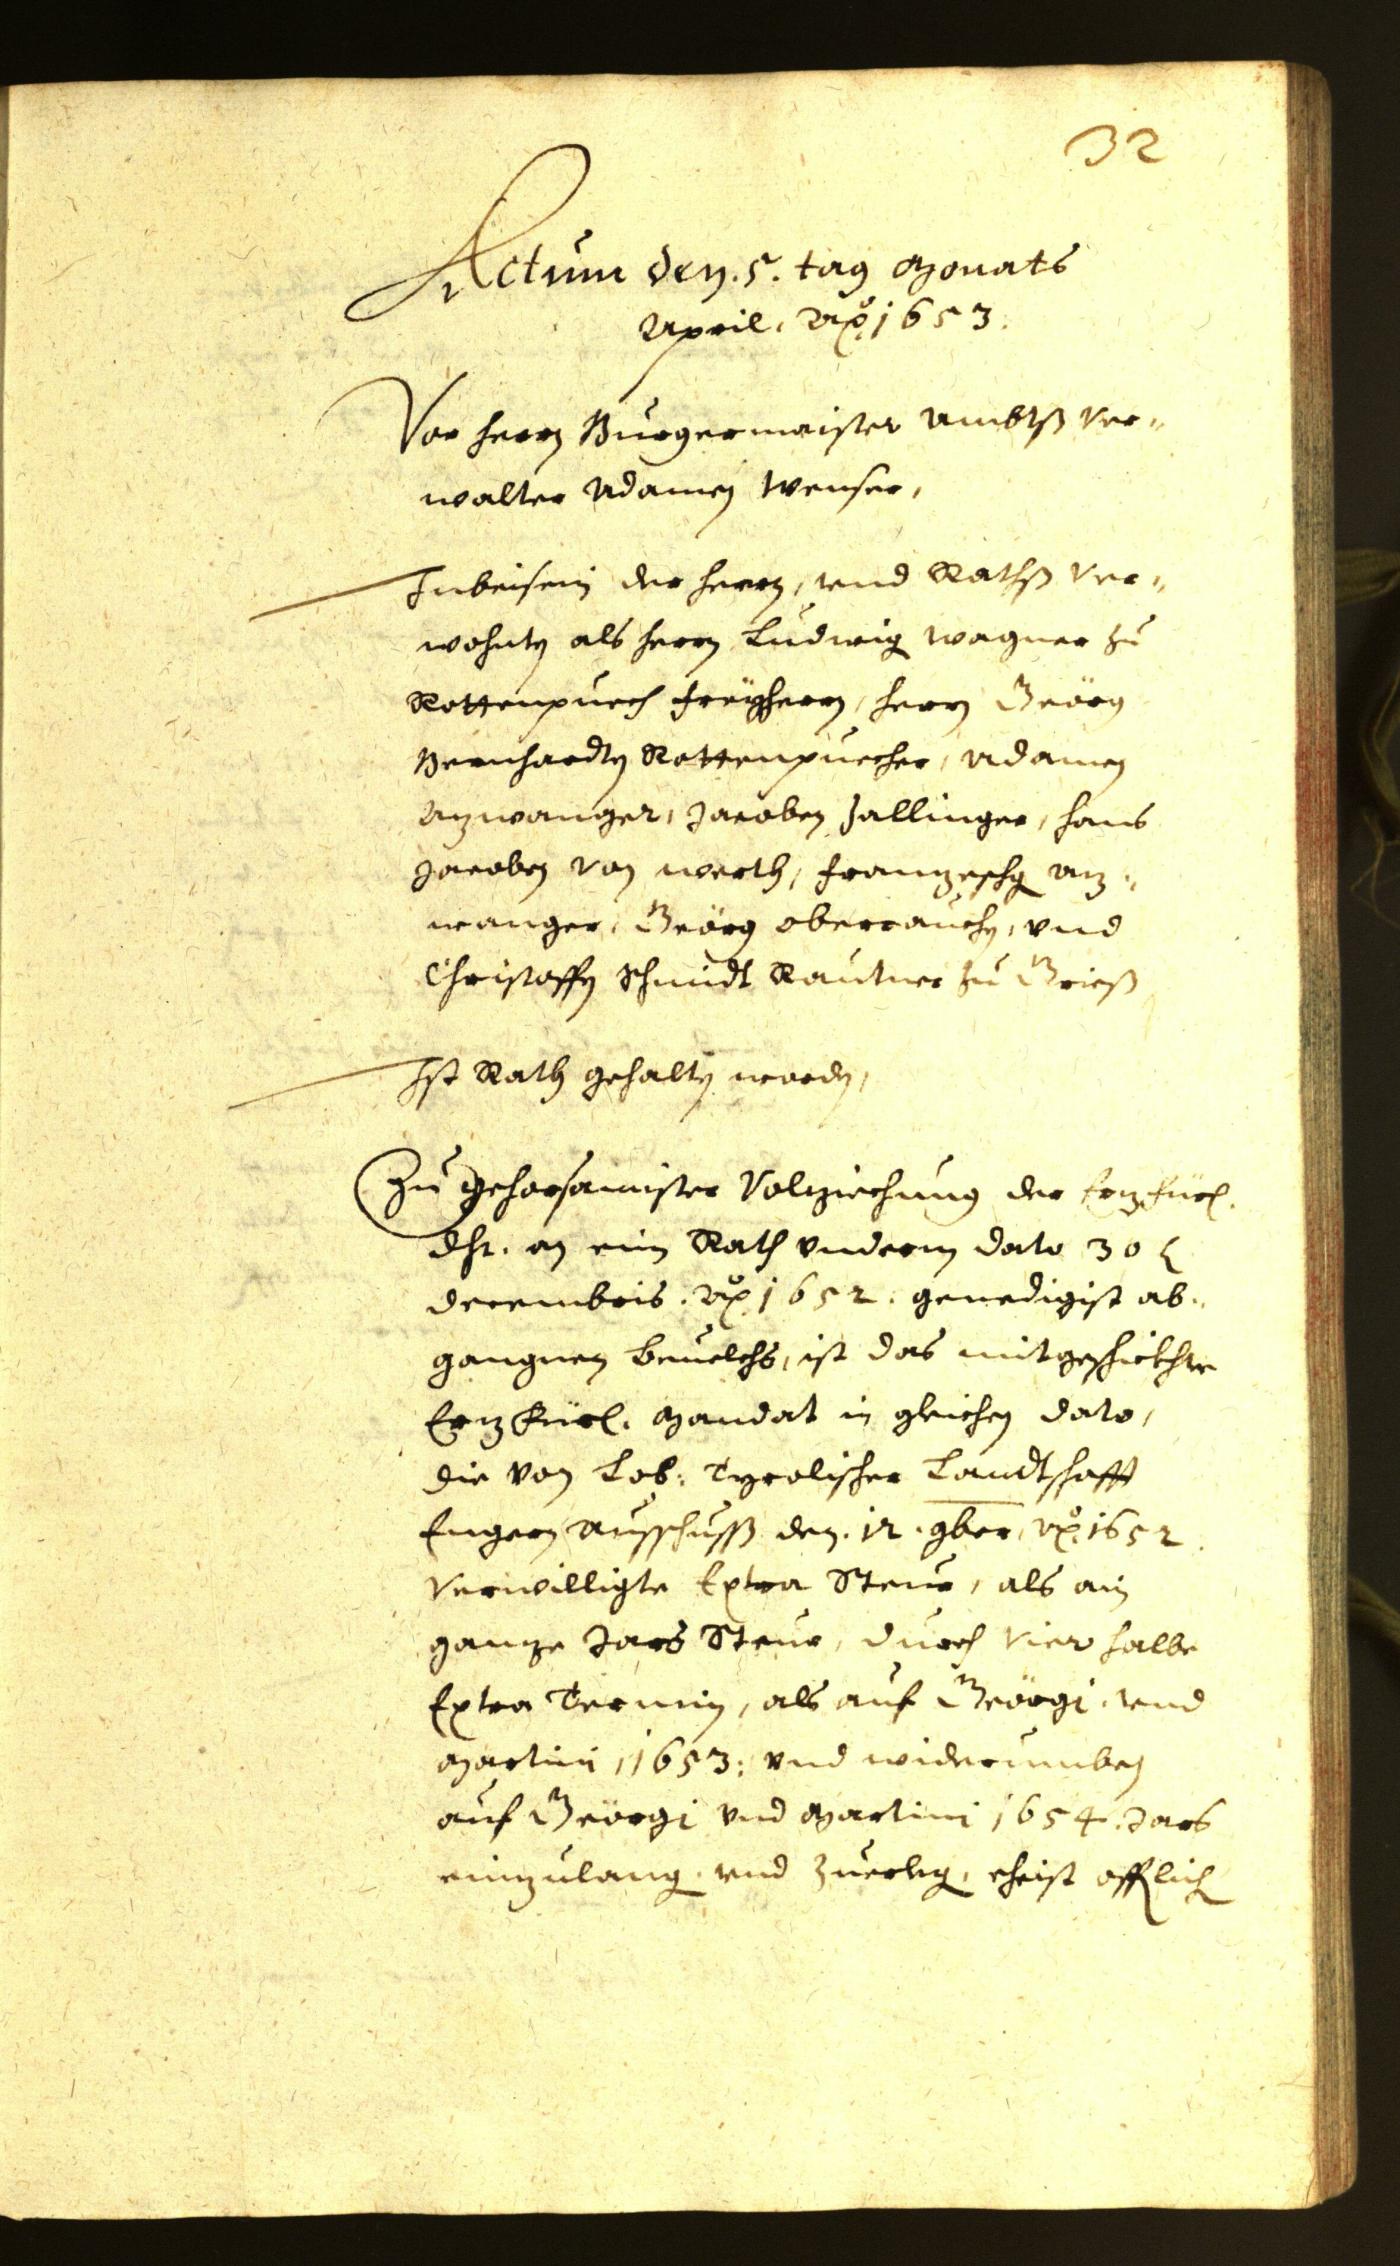 32
Actum den .5. tag Monats
April, Aõ. 1653.
Vor herrn Burgermaister Ambtß Ver„
walter Adamen Wenser,
Inbeisein der herrn, vnd Rathß Ver„
wohnten als herrn Ludwig Wagner zu
Rottenpuech freyherrn, herrn Geörg
Bernhardten Rottenpuecher, Adamen
Azwanger, Jacoben Zallinger, hans
Jacoben von Werth, Franzeschg Az„
wanger, Geörg oberrauchen, vnd
Christoffen Schmidt Rautner zu Grieß
Ist Rath gehalten worden,
Zu gehorsamister Volziechung der Erzfürl.
dhr. an ein Rath vnderm dato 30
decembris. Aõ. 1652. genedigist ab„
gangnen beuelchs, ist das mitgeschickhte
Erzfürl. Mandat in gleichen dato,
die von Lob: Tyrolischer Landtschafft
Engern Ausschusß den .12. 9ber, Aõ. 1652
Verwilligte Extra Steur, als ain
ganze Jars Steur, durch vier halbe
Extra Termin, als auf Geörgi vnd
Martini, 1653: vnd widerumben
auf Geörgi vnd Martini 1654. Jars
einzulang. vnd Zuerleg. eheist offlich